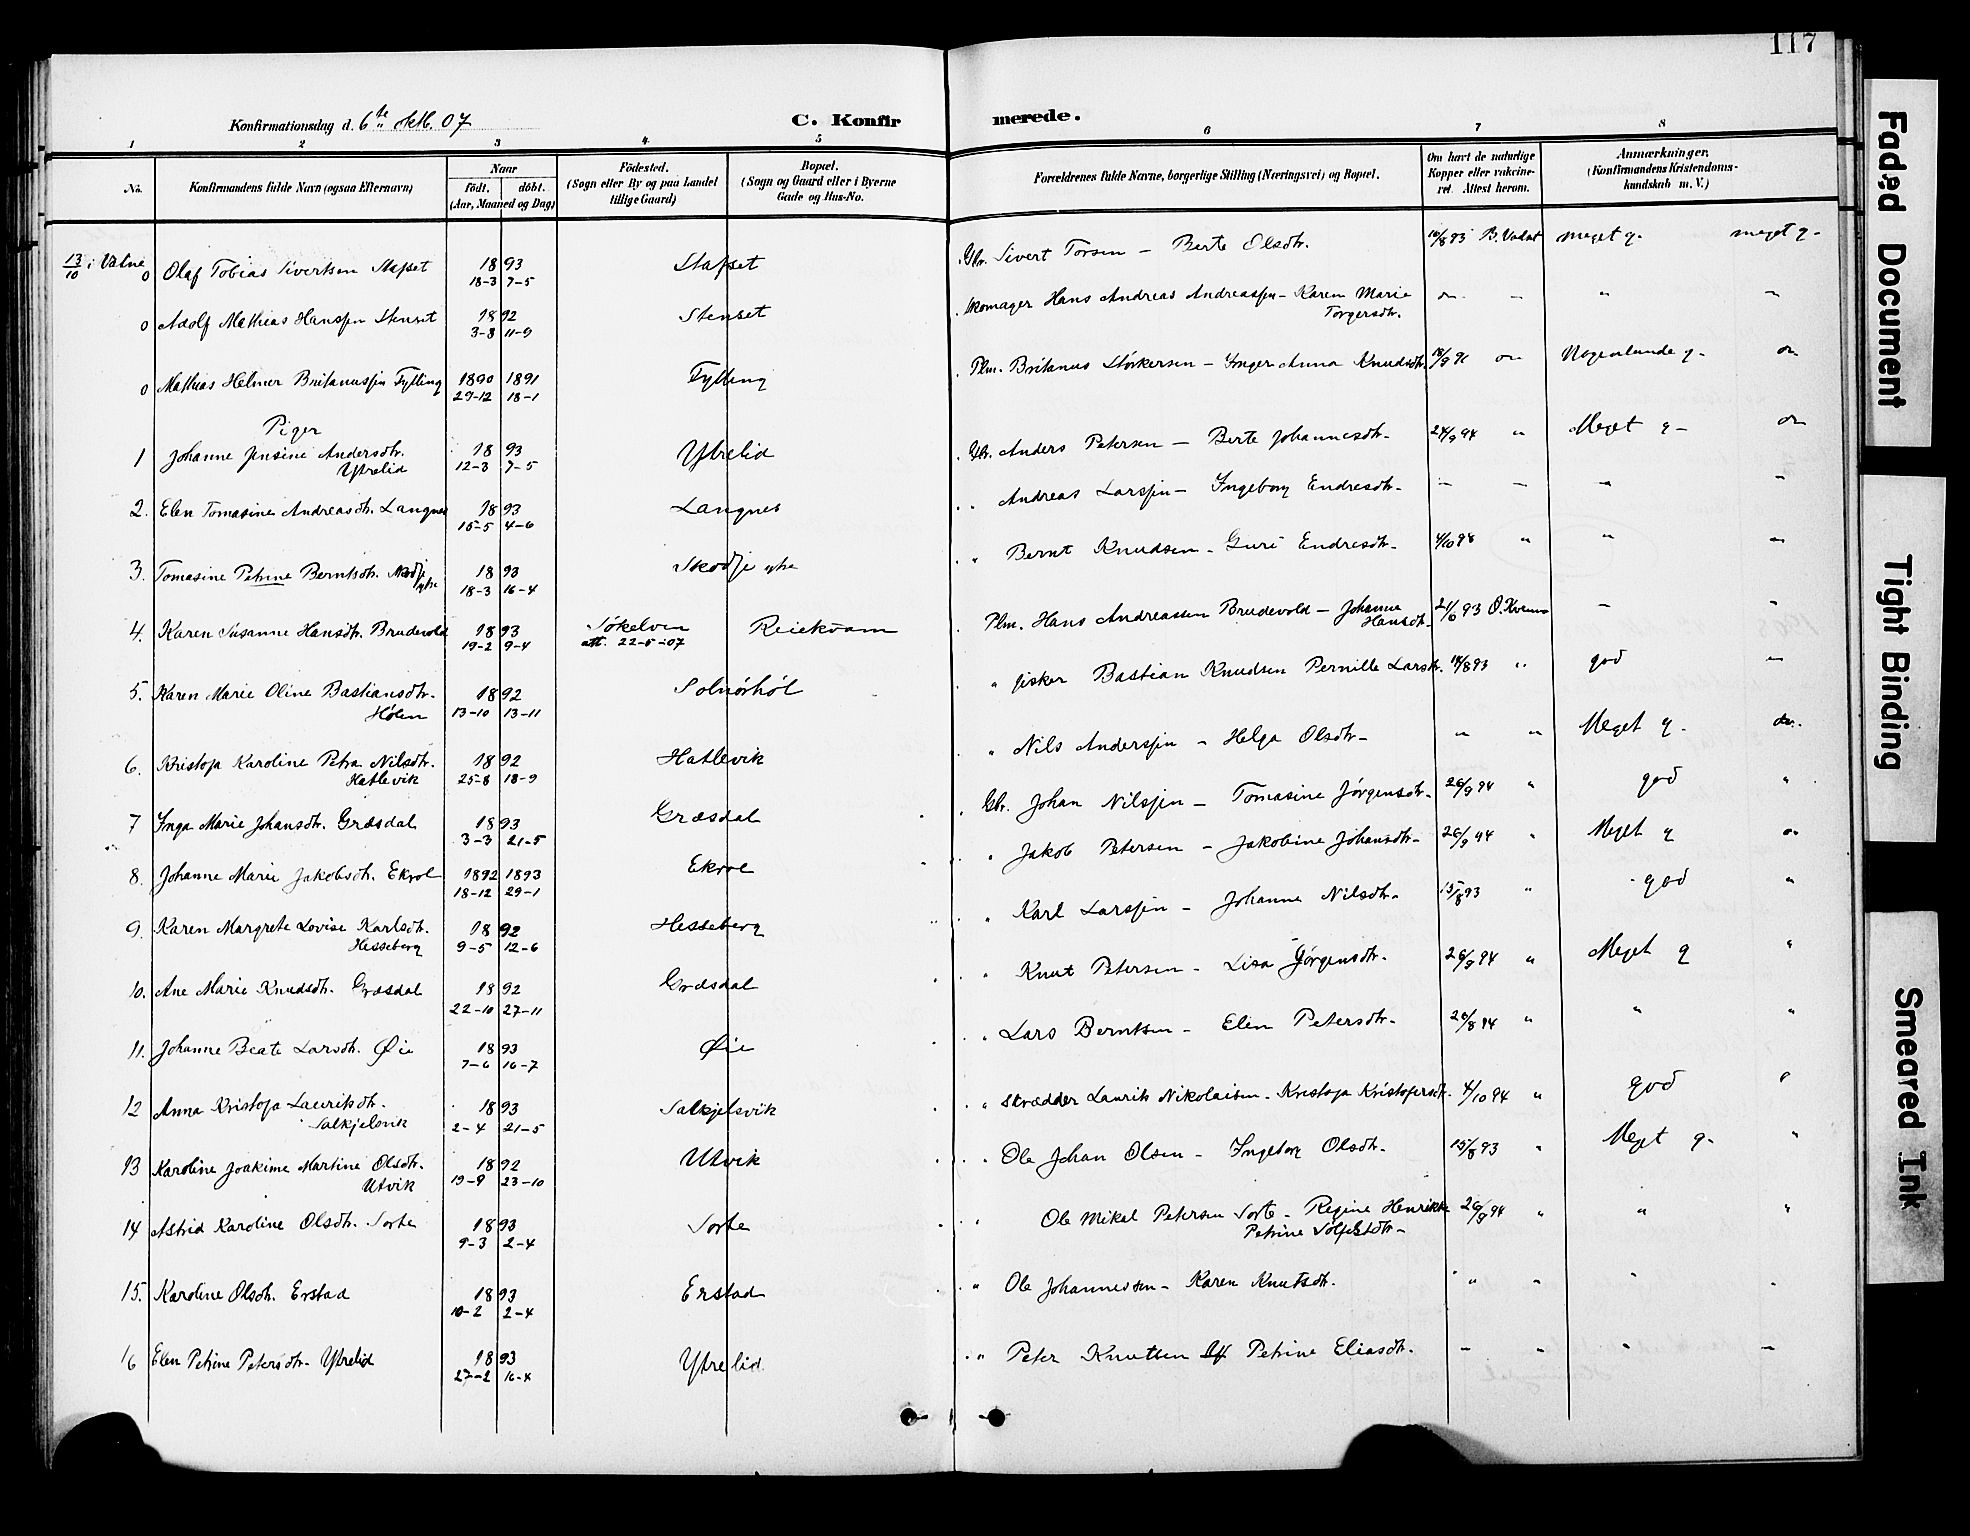 117
Konfirmationsdag d. 6te oktb. 07
C. Konfirmerede.
1 2 3 4 5 6 7 8
No.
Konfirmandens fulde Navn (ogsaa Efternavn)
Naar
født. døbt.
(Aar, Maaned og Dag)
Fødested.
(Sogn eller By og paa Landet
tillige Gaard)
Bopæl.
(Sogn og Gaard eller i Byerne
Gade og Hus-No.
Forældrenes fulde Navne, borgerlige Stilling (Næringsvei) og Bopæl.
Om havt de naturlige
Kopper eller vakcine-
ret. Attest herom.
Anmærkninger.
(Konfirmandens Kristendoms-
kundskab m. V.)
13/10 i Vatne
0 Olaf Tobias Sivertsen Stafset 1893 18-3 7-5 Stafset Gbr. Sivert Torsen - Berte Olsdtr. 16/8 93 B. Vadset meget g. meget g.
0 Adolf Mathias Hanssen Stenset 1892 3-8 11-9 Stenset Skomager Hans Andreas Andreassen - Karen Marie
Torgersdtr.
0 Mathias Helmer Britanussen Fylling 1890 1891 29-12 18-1 Fylling Plm. Britanus Størkersen - Inger Anna Knudsdtr. Nogenlunde g.
Piger
1 Johanne Jensine Andersdtr.
Ytrelid 1893 12-3 7-5 Ytrelid Gbr. Anders Petersen - Berte Johannesdtr. 24/9 94 " Meget g -
2. Elen Tomasine Andreasdtr. Langnes 1893 15-5 4-6 Langnes " Andreas Larssen - Ingeborg Endresdtr.
3. Tomasine Petrine Berntsdtr. Skodje
ytre 1893 18-3 16-4 Skodje ytre " Bernt Knudsen - Guri Endresdtr. 4/10 94 " "
4. Karen Susanne Hansdtr. Brudevold 1893 19-2 9-4 Søkelven
att. 22-5-07 Reiekvam Plm. Hans Andreassen Brudevold - Johanne
Hansdtr. 93 O. Kvenna
5. Karen Marie Oline Bastiansdtr.
Hølen 1892 13-10 13-11 Solnørhøl " fisker Bastian Knudsen Pernille Larsdtr. 14/8 93 " god
6. Kristofa Karoline Petra Nilsdtr.
Hatlevik 1892 25-8 18-9 Hatlevik " Nils Anderssen - Helga Olsdtr. " " Meget g. do.
7 Inga Marie Johansdtr. Græsdal 1893 3-3 21-5 Græsdal Gbr. Johan Nilssen - Tomasine Jørgensdtr. 26/9 94 " god "
8. Johanne Marie Jakobsdtr. Ekrol 1892 1893 18-12 29-1 Ekrol " Jakob Petersen - Jakobine Johansdtr. 26/9 94 " Meget g
9. Karen Margrete Lovise Karlsdtr.
Hesseberg 1892 9-5 12-6 Hesseberg " Karl Larssen - Johanne Nilsdtr. 15/8 93 " god "
10. Ane Marie Knudsdtr. Græsdal 1892 22-10 27-11 Græsdal " Knut Petersen - Lisa Jørgensdtr. 26/9 94 " Meget g "
11. Johanne Beate Larsdtr. Øie 1893 7-6 16-7 Øie " Lars Berntsen - Elen Petersdtr. 26/8 94 " " "
12 Anna Kristofa Lauritsdtr.
Salkjelsvik 1893 2-4 21-5 Salkjelsvik " Skrædder Laurits Nikolaisen - Kristofa Kristofersdtr. 4/10 94 " god "
13 Karoline Joakime Martine Olsdtr.
Utvik 1892 19-9 23-10 Utvik " Ole Johan Olsen - Ingeborg Olsdtr. 15/8 93 " Meget g. "
14 Astrid Karoline Olsdtr. Sorte 1893 9-3 2-4 Sorte " Ole Mikal Petersen Sorte - Regine Henrikke
Petrine Sølfestdtr. 26/9 94 " " "
15. Karoline Olsdtr. Erstad 1893 10-2 2-4 Erstad " Ole Johannessen - Karen Knutsdtr. " " " "
16 Elen Petrine Petersdtr. Ytrelid 1893 27-2 16-4 Ytrelid " Peter Knutsen Petrine Eliasdtr. - " " -
Faded Document
Tight Binding
Smeared Ink